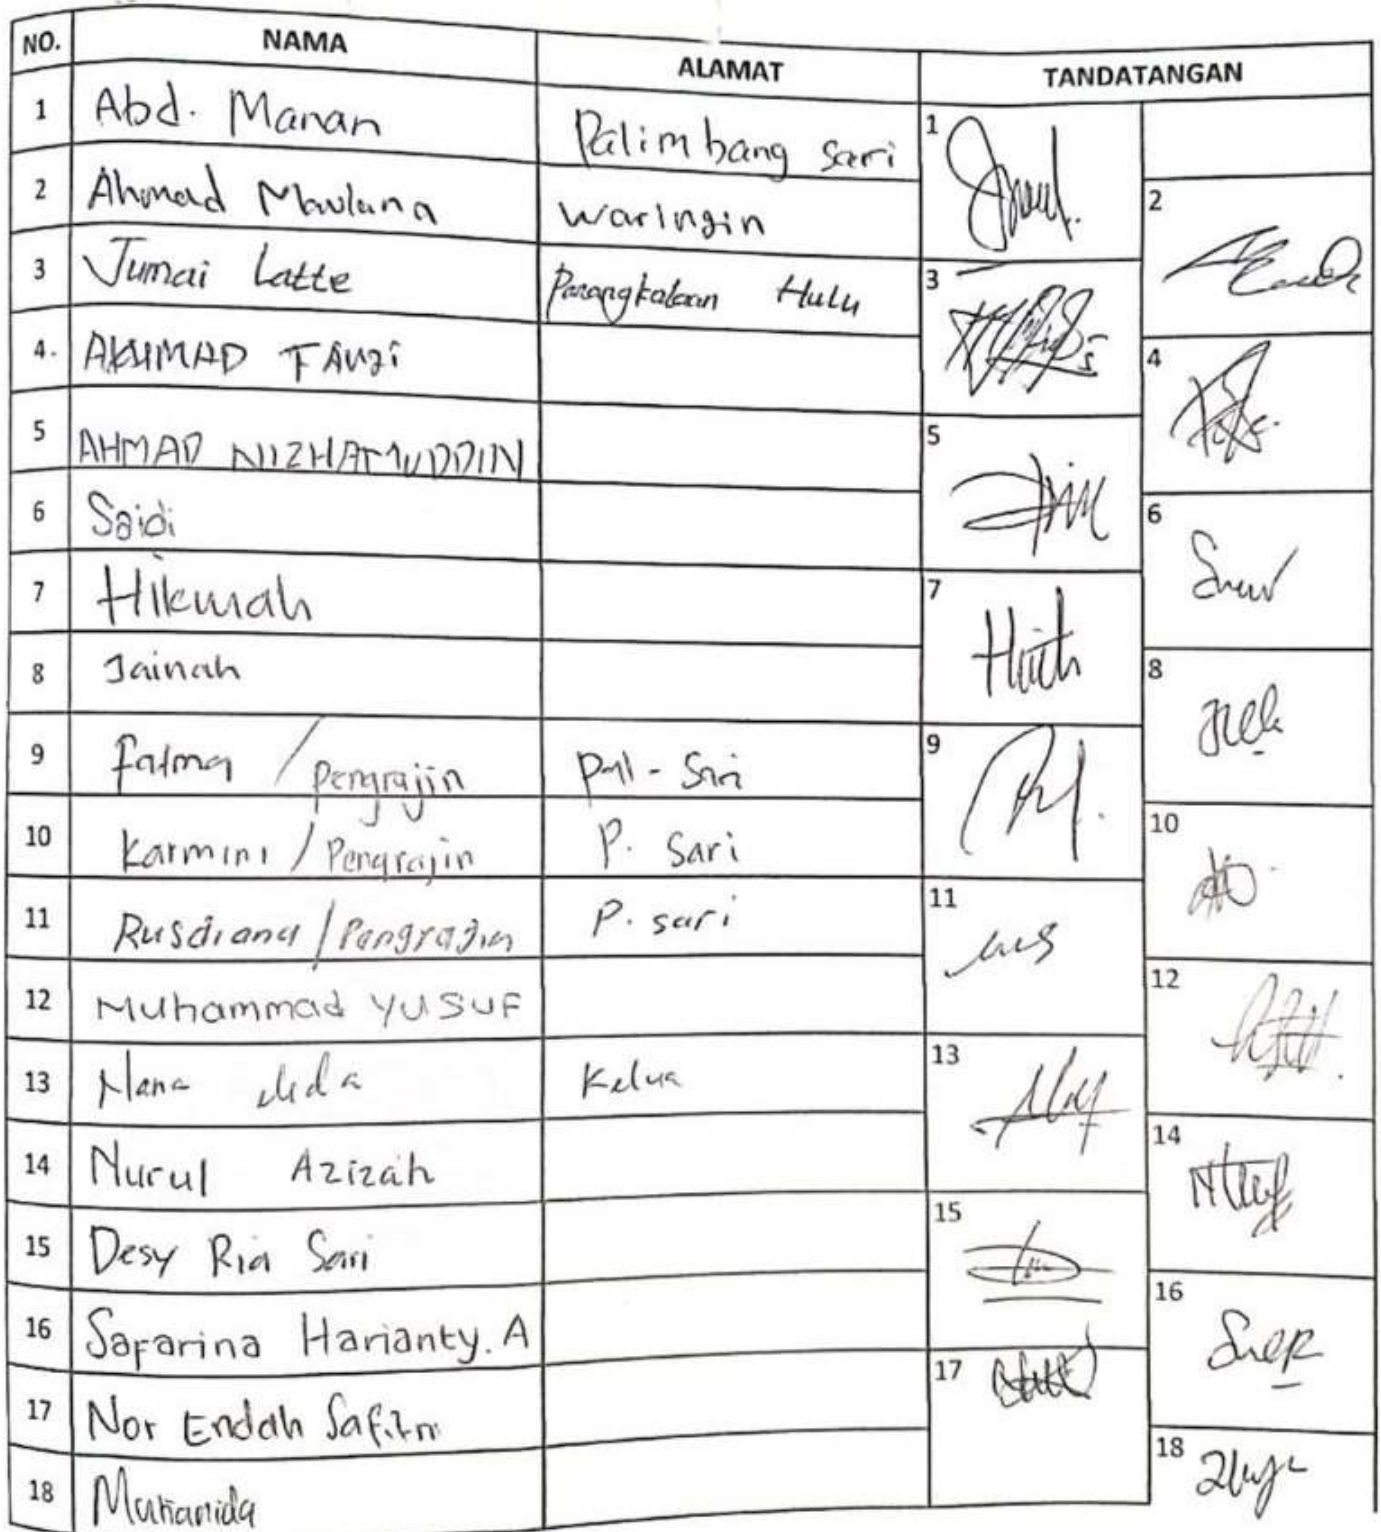 NO. NAMA ALAMAT TANDATANGAN
1 Abd. Manan Palimbang Sari 1
2 Ahmad Maulana Waringin 2
3 Jumai Latte Parangkalaan Hulu 3
4. AKHMAD FAUZI 4
5 AHMAD NIZHAMUDDIN 5
6 Saidi 6
7 Hikmah 7
8 Jainah 8
9 Fatma / Pengrajin Pal - Sari 9
10 Karmini / Pengrajin P. Sari 10
11 Rusdiana / Pengrajin P. sari 11
12 Muhammad YUSUF 12
13 Kelua 13
14 Nurul Azizah 14
15 Desy Ria Sari 15
16 Safarina Harianty. A 16
17 Nor Endah Safitri 17
18 Muhanida 18